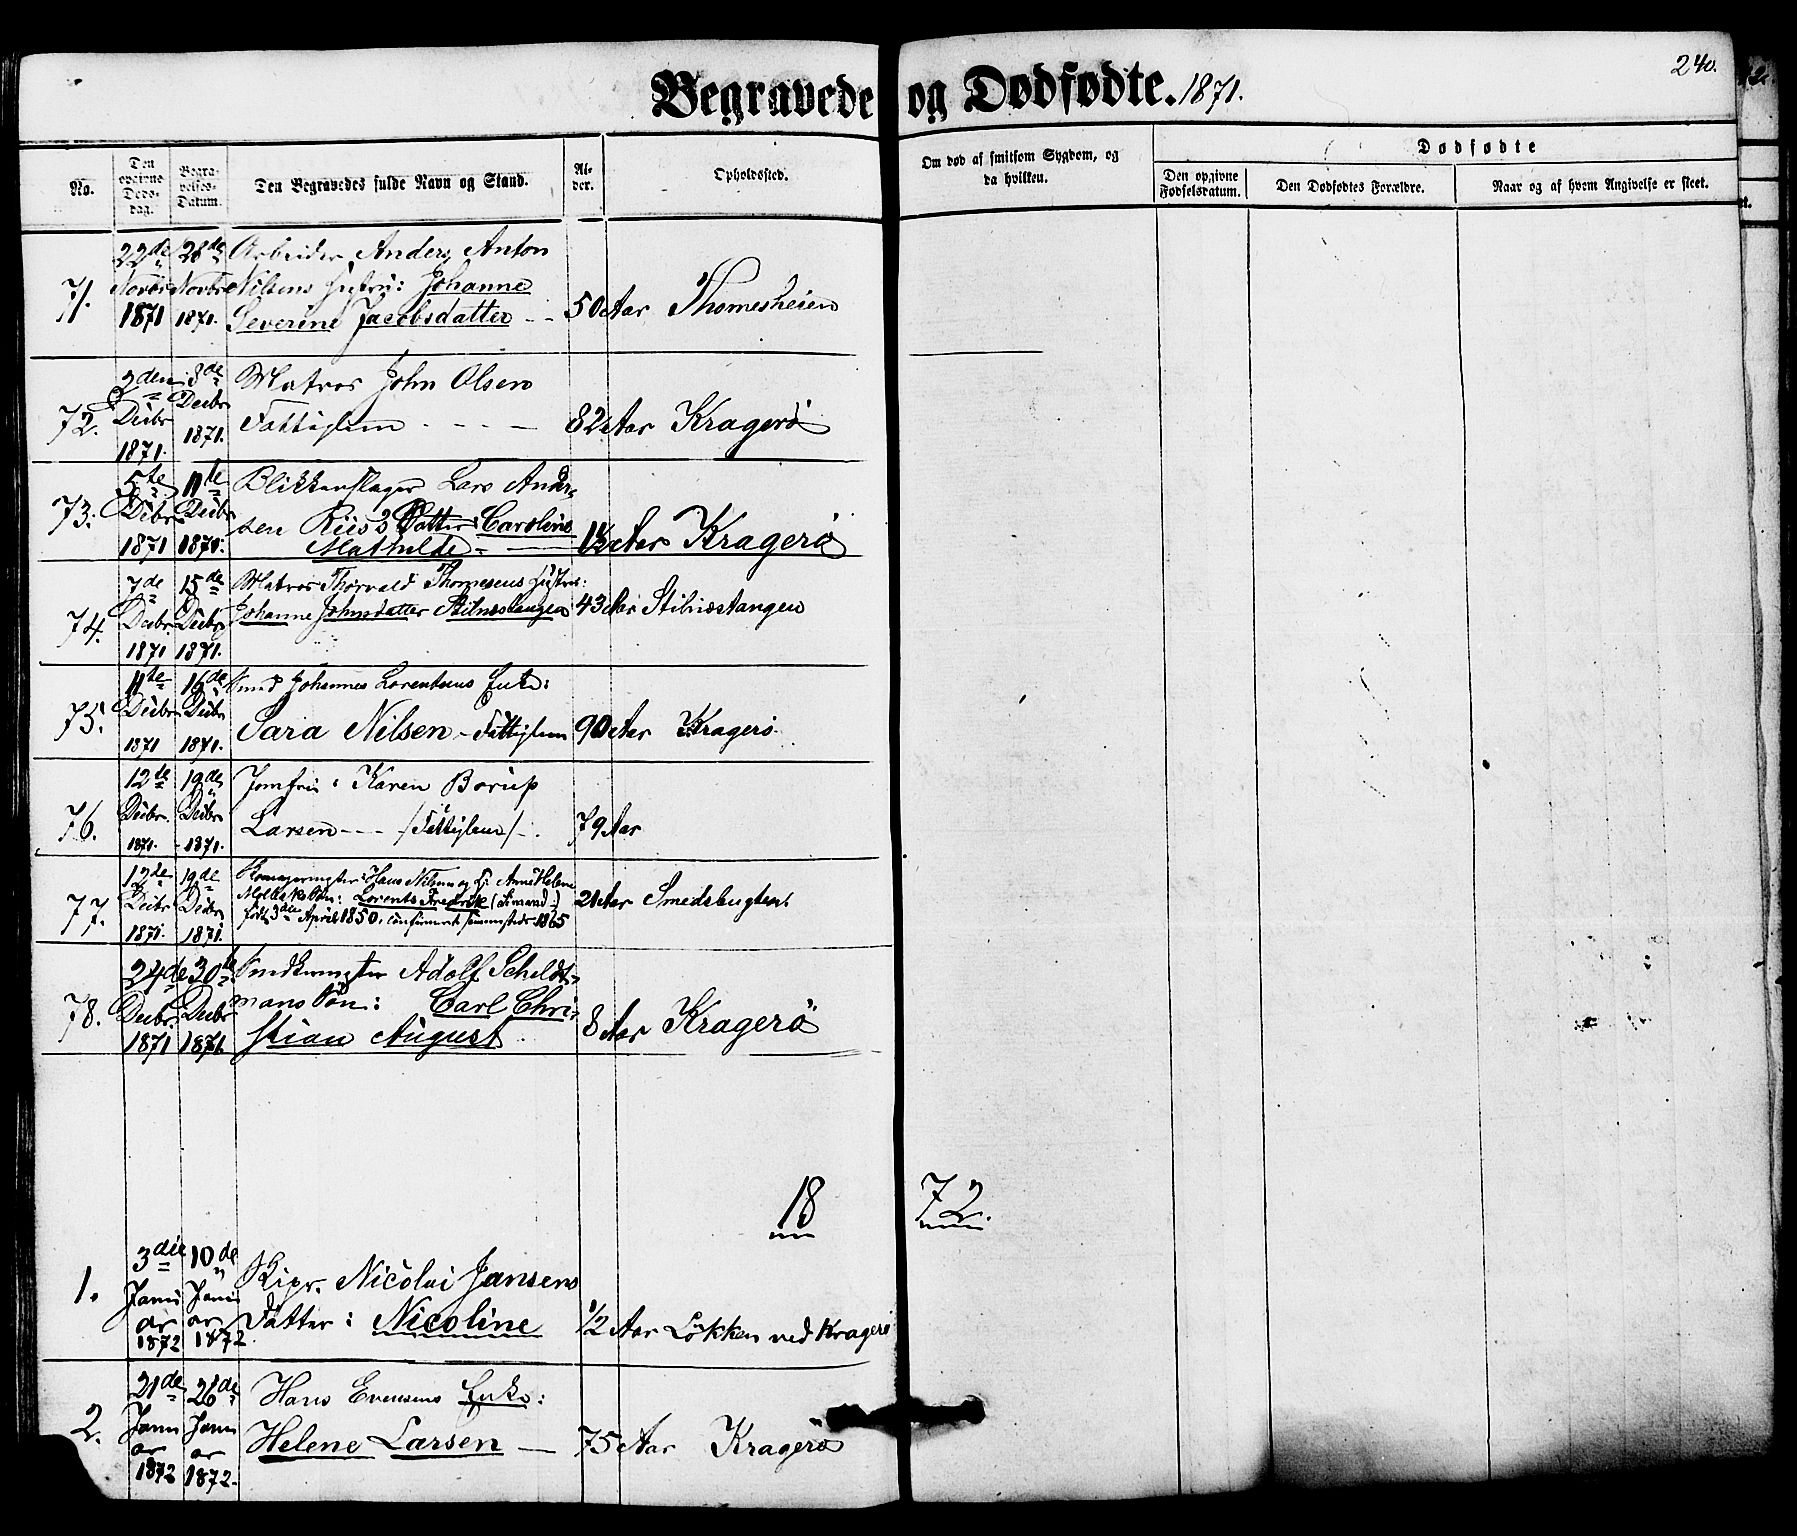 240.
Begravede og Dødfødte. 1871.
No.
Den opgivne Dødsdag.
Begravelses-Datum.
Den Begravedes fulde Navn og Stand.
Alder.
Opholdssted.
Om død af smitsom Sygdom, og da hvilken.
Dødfødte
Den opgivne Fødselsdatum.
Den Dødfødtes Forældre.
Naar og af hvem Angivelse er skeet.
71.
22de Novbr 1871
28de Novbr 1871.
Arbeider Anders Anton
Nilsens Hustru: Johanne
Severine Jacobsdatter - -
50 Aar Thomesheien
72.
2den Decbr 1871.
8de Decbr 1871.
Matros John Olsen
Fattiglem - - - -
82 Aar Kragerö
73.
5te Decbr 1871
11te Decbr 1871.
Blikkenslager Lars Ander-
sen Riis's Datter: Caroline
Mathilde - —
1½ Aar Kragerö
74.
7de Decbr 1871
15de Decbr 1871.
Matros Thorvald Thomesens Hustru:
Johanne Johnsdatter Stilnæstangen
43 Aar Stilnæstangen
75.
11te Decbr 1871
16de Decbr 1871.
Smed Johannes Lorentsens Enke:
Sara Nilsen - Fattiglem
90 Aar Kragerö
76.
12te Decbr 1871.
19de Decbr 1871.
Jomfru: Karen Borup
Larsen - - - /Fattiglem/ -
79 Aar
77.
12te Decbr 1871.
19de Decbr 1871.
Hans Nilsen og H: Anne Helene
Søn: Lorents Fredrik (Sömand:)
født 3die April 1850, confirmeret sammesteds 1865
21 Aar Smedsbugten
78.
24de Decbr 1871
30te Decbr 1871.
Snedkermester Adolf Scheldt-
mans Sön: Carl Chri-
stian August
8 Aar Kragerö
18
72.
1.
3die Januar 1872
10de Januar 1872.
Skipr. Nicolai Jansens
Datter: Nicoline
1/2 Aar Løkken ved Kragerö
2.
21de Januar 1872
26de Januar 1872.
Hans Evensens Enke:
Helene Larsen —
75 Aar Kragerö